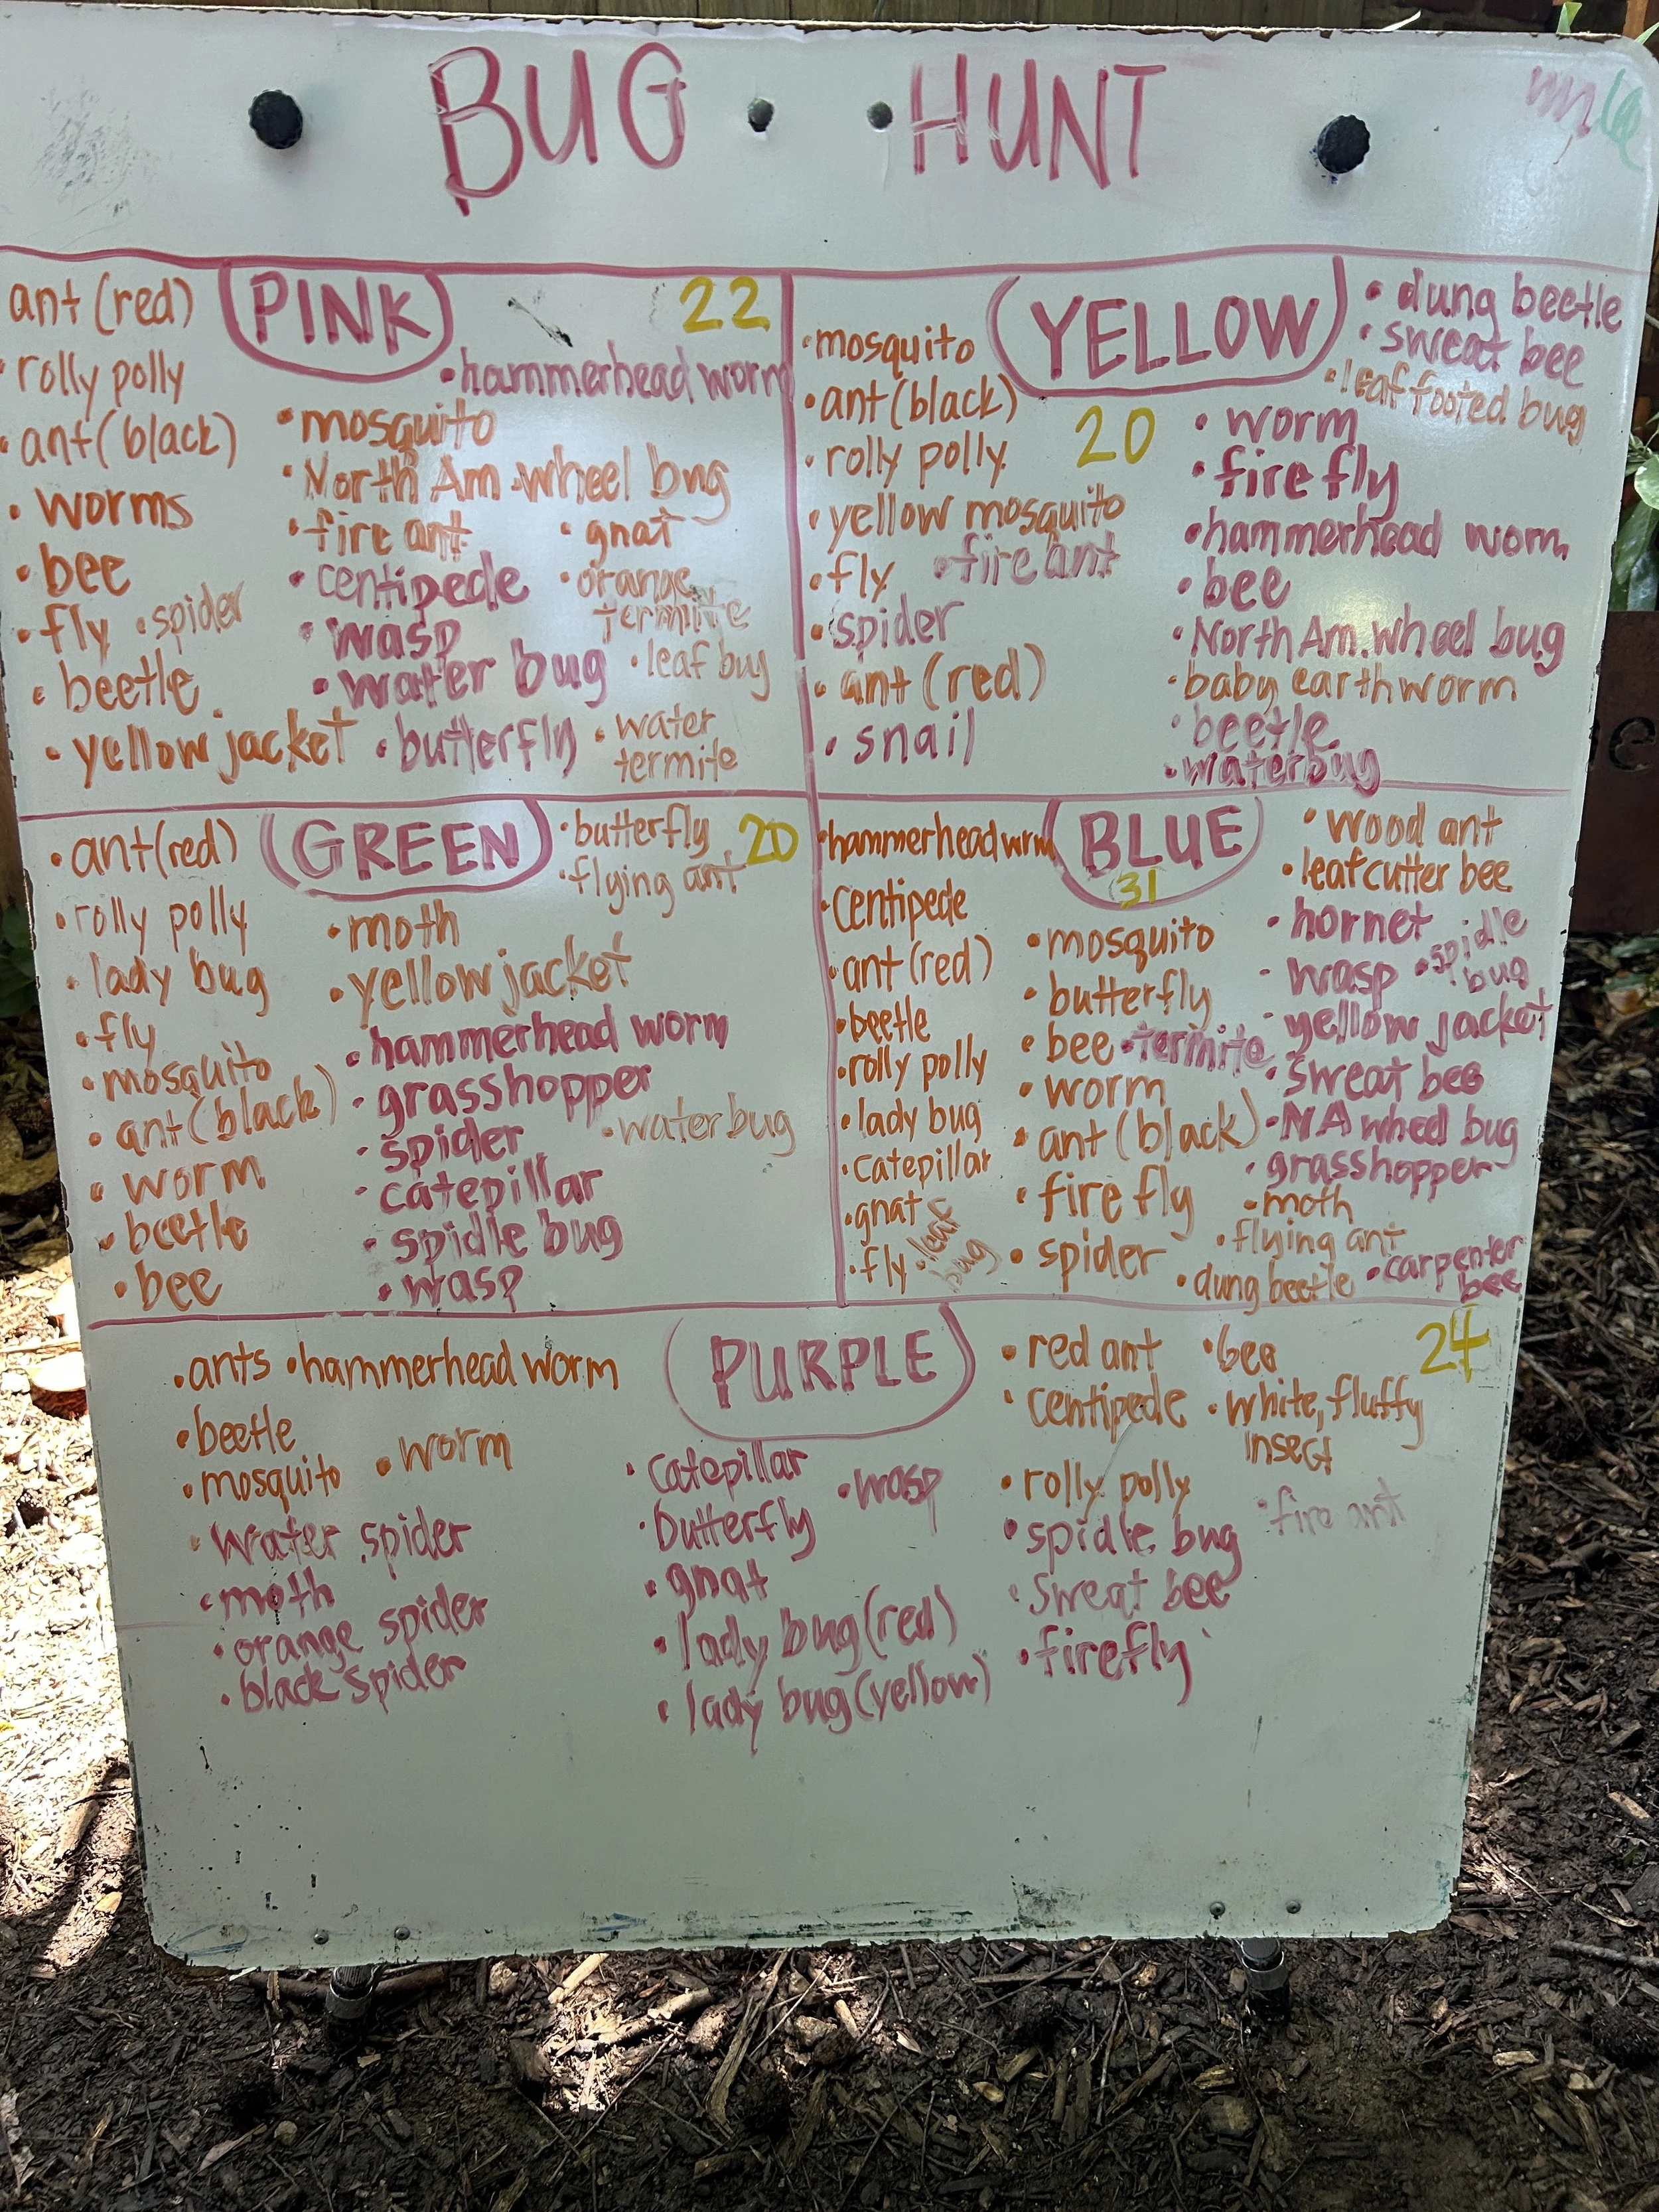 BUG HUNT
PINK
22
ant (red)
• rolly polly
• ant (black)
• worms
• bee
• fly • spider
• beetle
• yellow jacket
• hammerhead worm
• mosquito
• North Am. wheel bug
• fire ant
• centipede
• wasp
• water bug
• butterfly
• gnat
• orange
termite
• leaf bug
• water
termite
YELLOW
20
• mosquito
• ant (black)
• rolly polly
• yellow mosquito
• fly • fire ant
• spider
• ant (red)
• snail
• dung beetle
• sweat bee
• leaf footed bug
• worm
• fire fly
• hammerhead worm
• bee
• North Am. wheel bug
• baby earthworm
• beetle
• waterbug
GREEN
20
• ant (red)
• rolly polly
• lady bug
• fly
• mosquito
• ant (black)
• worm
• beetle
• bee
• butterfly
• flying ant
• moth
• yellow jacket
• hammerhead worm
• grasshopper
• spider
• catepillar
• spidle bug
• wasp
• water bug
BLUE
31
• hammerhead wrm
• centipede
• ant (red)
• beetle
• rolly polly
• lady bug
• catepillar
• gnat
• fly • leaf
bug
• mosquito
• butterfly
• bee • termite
• worm
• ant (black)
• fire fly
• spider
• wood ant
• leafcutter bee
• hornet
• wasp • spidle
bug
• yellow jacket
• sweat bee
• NA wheel bug
• grasshopper
• moth
• flying ant
• dung beetle • carpenter
bee
PURPLE
24
• ants • hammerhead worm
• beetle
• mosquito • worm
• water spider
• moth
• orange spider
• black spider
• catepillar
• wasp
• butterfly
• gnat
• lady bug (red)
• lady bug (yellow)
• red ant • bee
• centipede • white, fluffy
insect
• rolly polly
• spidle bug • fire ant
• sweat bee
• firefly